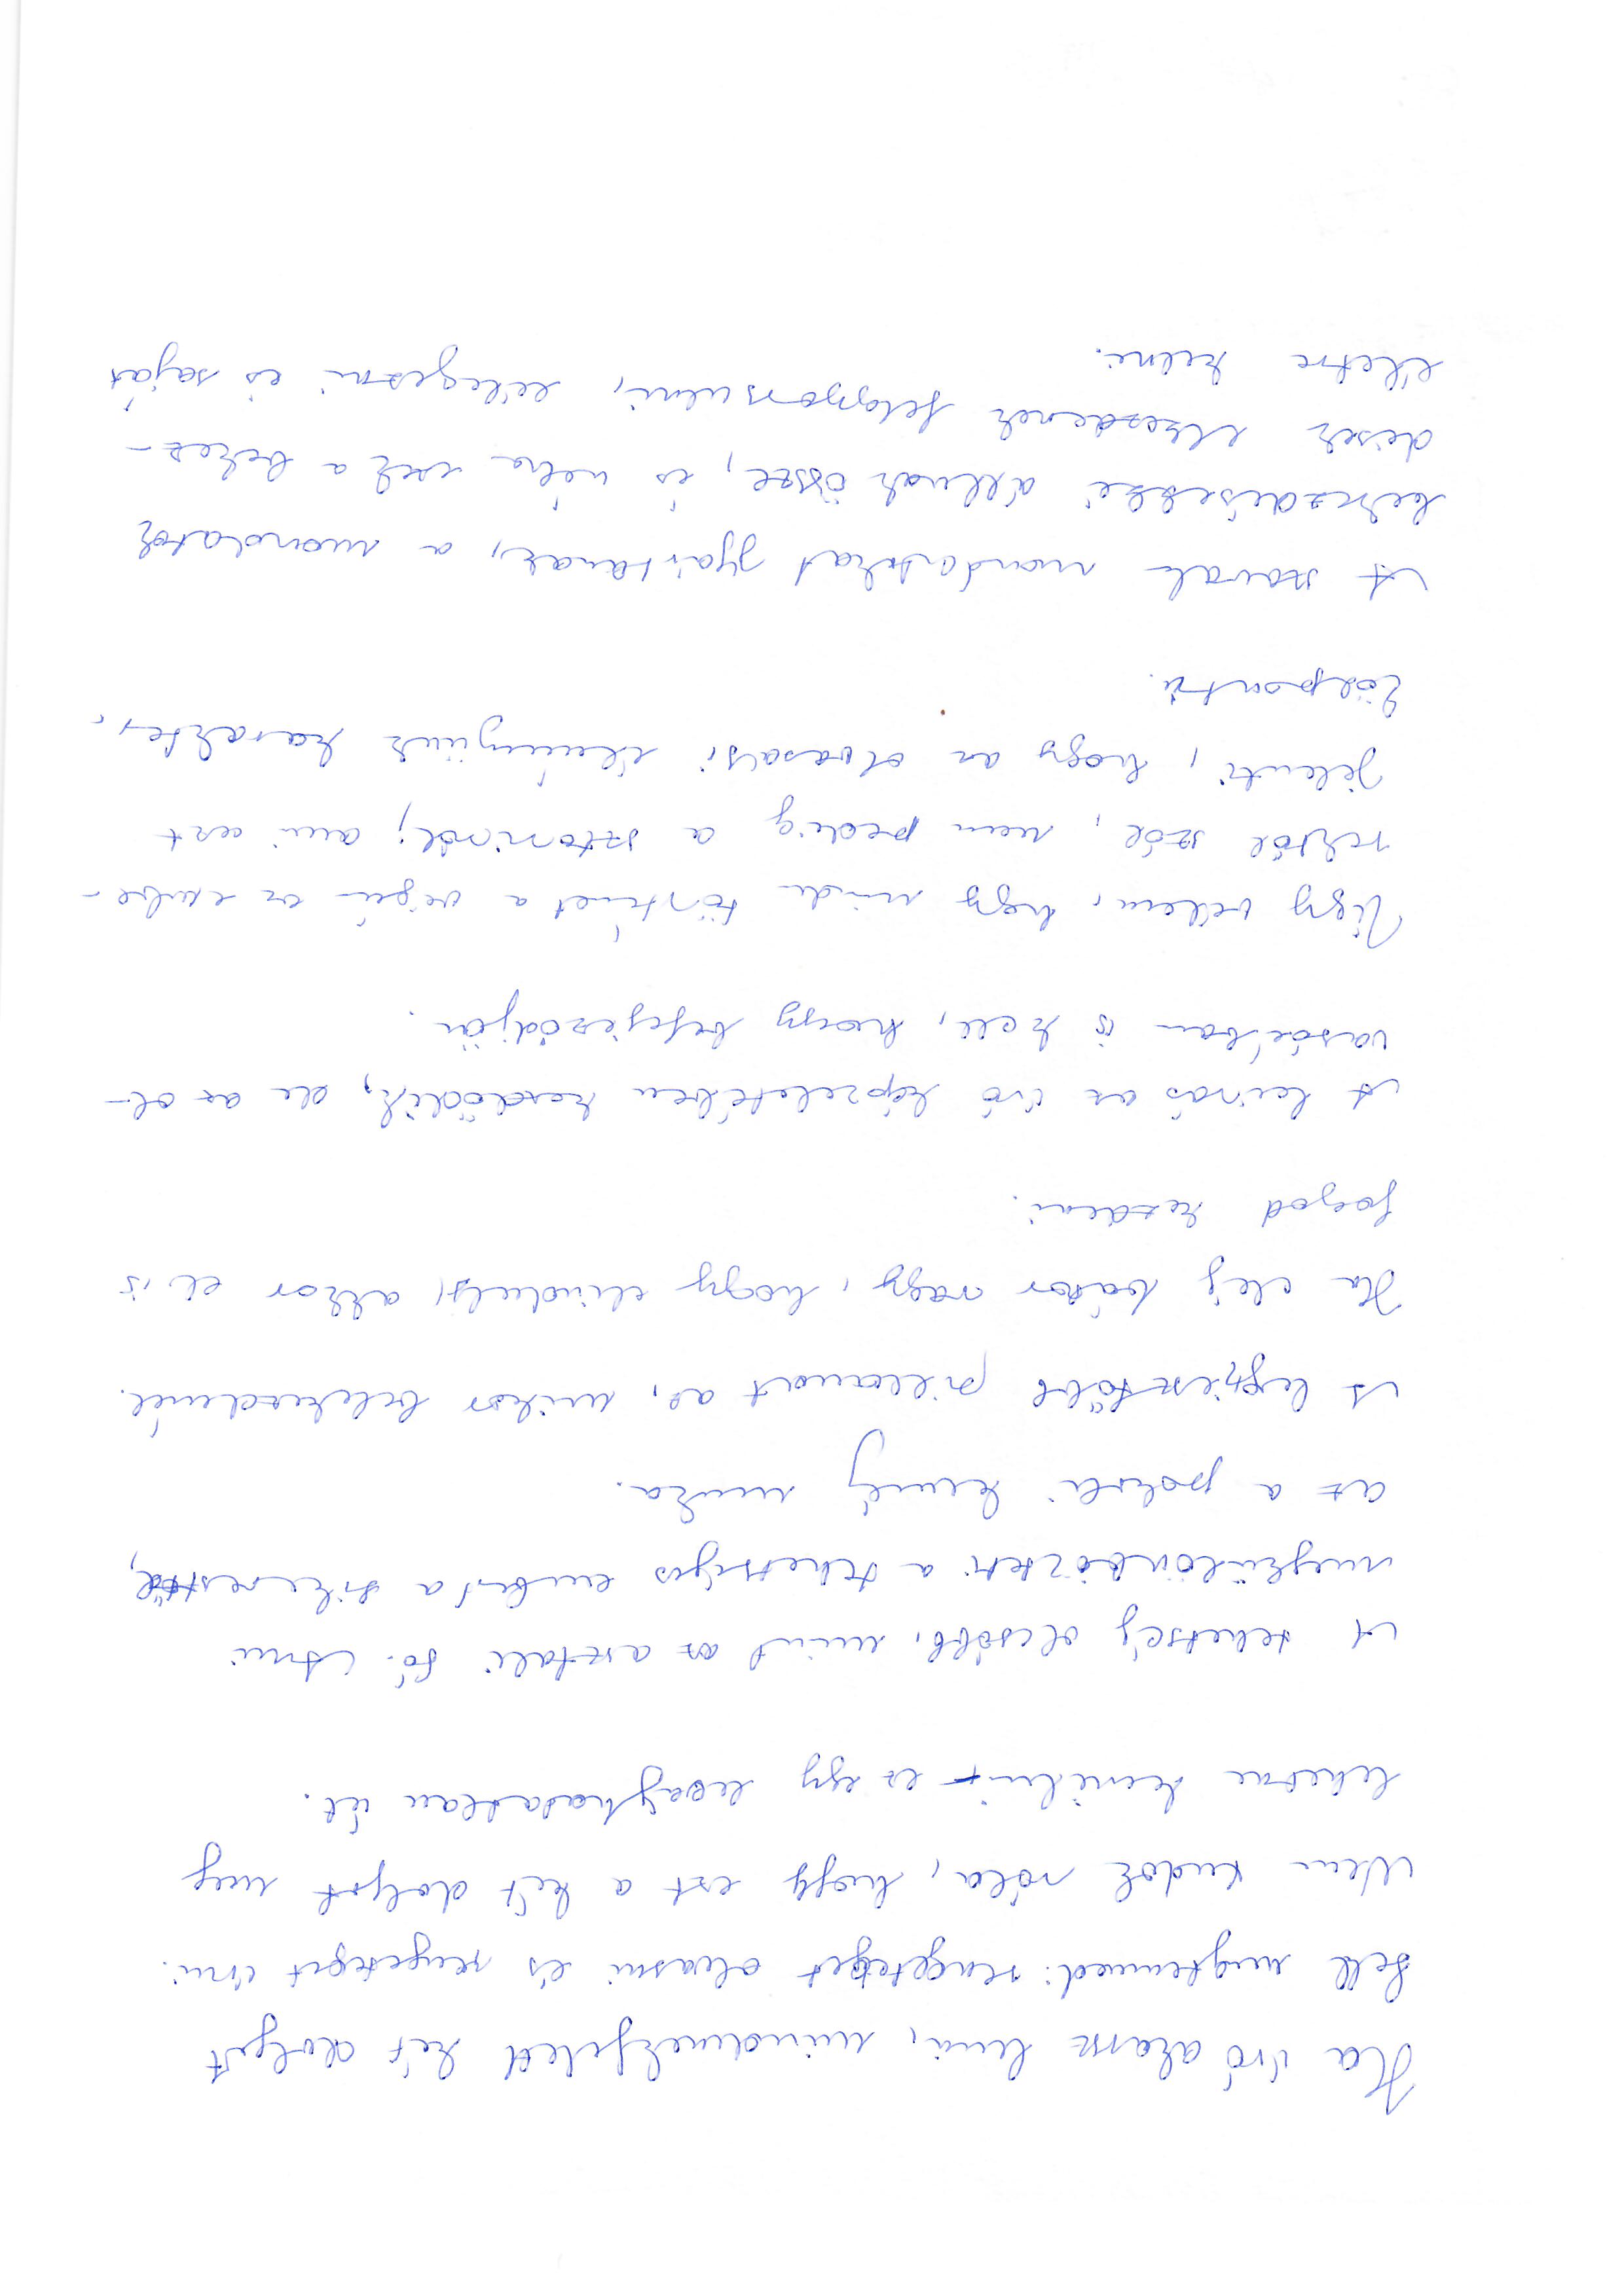 Ha író akarsz lenni, mindenekfelett két dolgot
kell megtenned: rengeteget olvasni és rengeteget írni.
Nem tudok róla, hogy ezt a két dolgot meg
lehetne kerülni – ez egy levághatatlan út.
A tehetség olcsóbb, mint az asztali só. Ami
megkülönbözteti a tehetséges embert a sikerestől,
az a pokoli kemény munka.
A legijesztőbb pillanat az, mikor belekezdenél.
Ha elég bátor vagy, hogy elindulj, akkor el is
fogod kezdeni.
A leírás az író képzeletében kezdődik, de az ol-
vasóéban is kell, hogy befejeződjön.
Úgy vélem, hogy minden történet a végén az embe-
rektől szól, nem pedig a sztoriról; ami azt
jelenti, hogy az olvasási élményünk karakter-
központú.
A szavak mondatokat gyártanak, a mondatok
bekezdésekké állnak össze, és néha ezek a bekez-
dések elkezdenek felgyorsulni, lélegezni és saját
életre kelni.